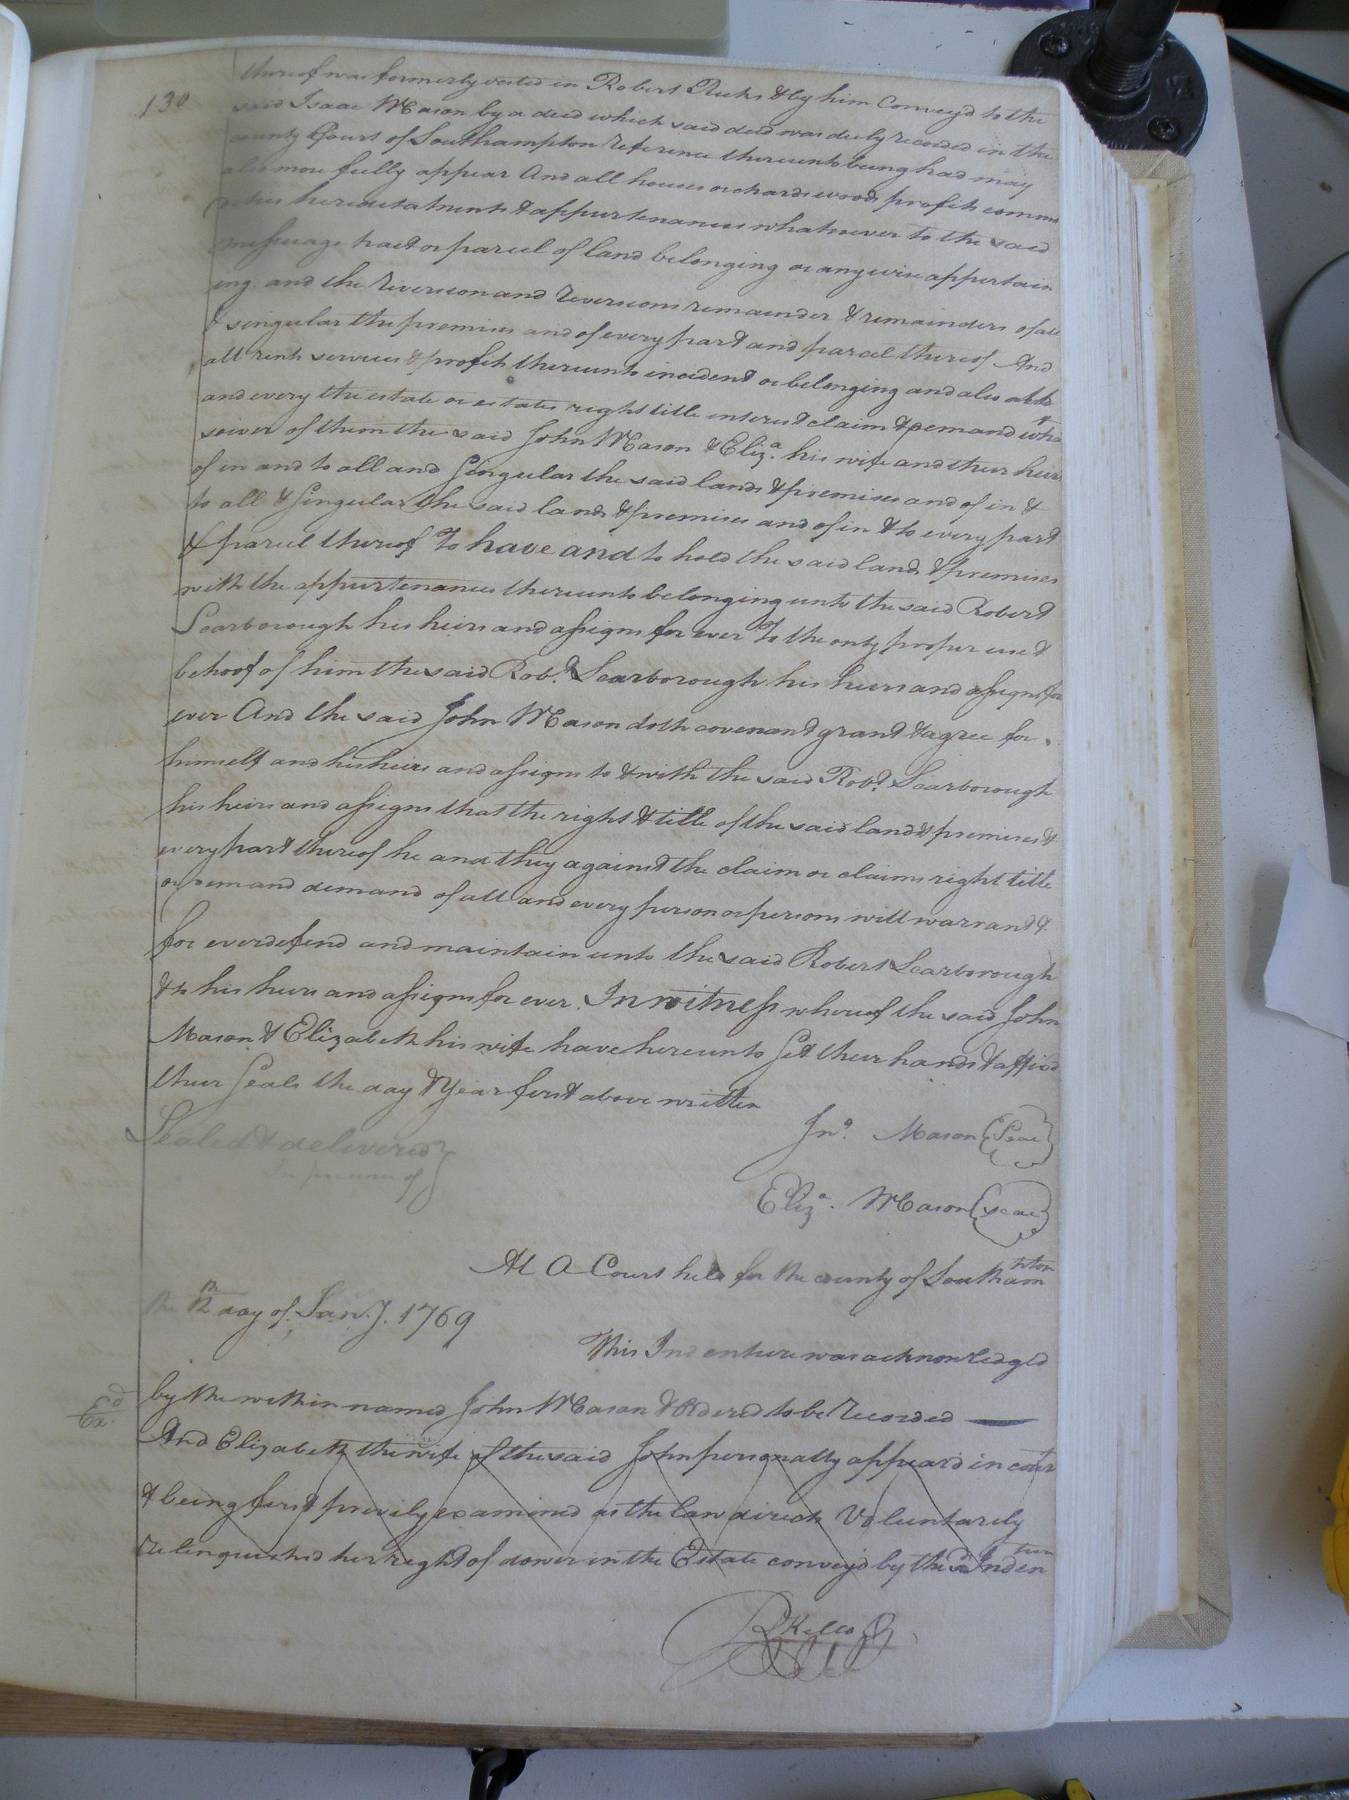 130
thereof was formerly vested in Robert Ricks & by him Convey'd to the
said Isaac Mason by a deed which said deed was duly recorded in the
county Court of Southampton reference thereunto being had may
also more fully appear And all houses orchards woods profits commo
dities heriditatments & appurtenances whatsoever to the said
messuage tract or parcel of land belonging or anywise appertain
ing. and the Reversion and Reversions remainder & remainders of all
& singular the premises and of every part and parcel thereof And
all rents services & profits thereunto incident or belonging and also all
and every the estate or estates right title interest claim & demand what
soever of them the said John Mason & Eliz.a his wife and their heirs
of in and to all and Singular the said lands & premises and of in &
to all & Singular the said lands & premises and of in & to every part
& parcel thereof To have and to hold the said lands & premises
with the appurtenances thereunto belonging unto the said Robert
Scarborough his heirs and assigns for ever To the only proper use &
behoof of him the said Rob.t Scarborough his heirs and assigns for
ever And the said John Mason doth covenant grant & agree for
himself and his heirs and assigns to & with the said Rob.t Scarborough
his heirs and assigns that the right & title of the said land & premises &
every part thereof he and they against the claim or claims right title
or demand demand of all and every person or persons will warrant &
for ever defend and maintain unto the said Robert Scarborough
& to his heirs and assigns for ever. In witness whereof the said John
Mason & Elizabeth his wife have hereunto Set their hands & affixd
their Seals the day & Year first above written
Jn.o Mason {Seal}
Sealed & delivered }
In presence of
Eliz.a Mason {seal}
At A Court held for the county of Southampton
the 12th day of Jan.y. 1769
This Indenture was acknowledged
by the within named John Mason & Ordered to be Recorded
Ex.d
And Elizabeth the wife of the said John personally appear'd in court
& being first privily examined as the law directs Voluntarily
relinquished her right of dower in the Estate convey'd by the sd Indenture
R Kello